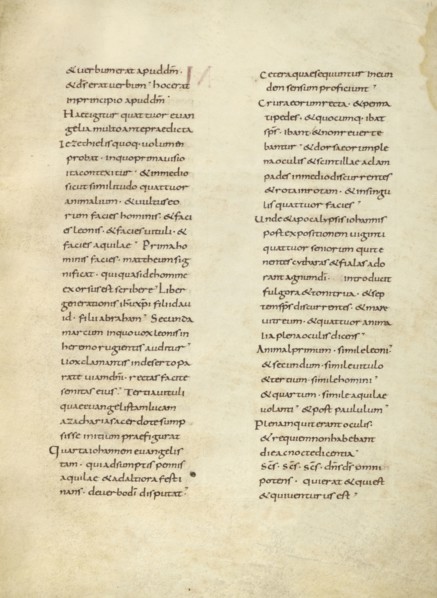 & verbum erat apud dm̄.
& dś erat verbum hoc erat
in principio apud dm̄
Haec igitur quattuor evan
gelia multo ante praedicta
Iezechielis quoq; volumen
probat. in quo prima visio
ita contexitur. & in medio
sicut similitudo quattuor
animalium. & vultus eo
rum facies hominis. & faci
es leonis. & facies vituli. &
facies aquilae. Prima ho
minis facies. mattheum sig
nificat. qui quasi de homine
exorsus est scribere. Liber
generationis ihu xpi filii dav
id. filii abraham. Secunda
marcum in quo vox leonis in
heremo rugientis auditur
Vox clamantis in deserto pa
rate viam dn̄i. rectas facite
semitas eius. Tertia vituli
quae evangelistam lucam
a zacharia sacerdote sump
sisse initium praefigurat
Quarta iohannem evangelis
tam. qui adsumptis pennis
aquilae & ad altiora festi
nans. de verbo dī disputat.
Cetera quae sequuntur in eun
dem sensum proficiunt
Crura eorum recta. & penna
ti pedes. & quocumq; ibat
sps̄. ibant & non reverte
bantur. & dorsa eorum ple
na oculis & scintillae ac lam
pades in medio discurrentes
& rota in rotam. & in singu
lis quattuor facies
Unde & apocalypsis iohannis
post expositionem viginti
quattuor seniorum qui te
nentes cytharas & fialas ado
rant agnum dī. introducit
fulgora & tonitrua. & sep
tem sps̄ discurrentes. & mare
vitreum. & quattuor anima
lia plena oculis dicens
Animal primum. simile leoni
& secundum. simile vitulo
& tertium. simile homini
& quartum. simile aquilae
volanti. & post paululum
Plena inquit erant oculis.
& requiem non habebant
die ac nocte dicentia
Scs̄. Scs̄. Scs̄. dn̄s ds̄ omni
potens. qui erat & qui est
& qui venturus est